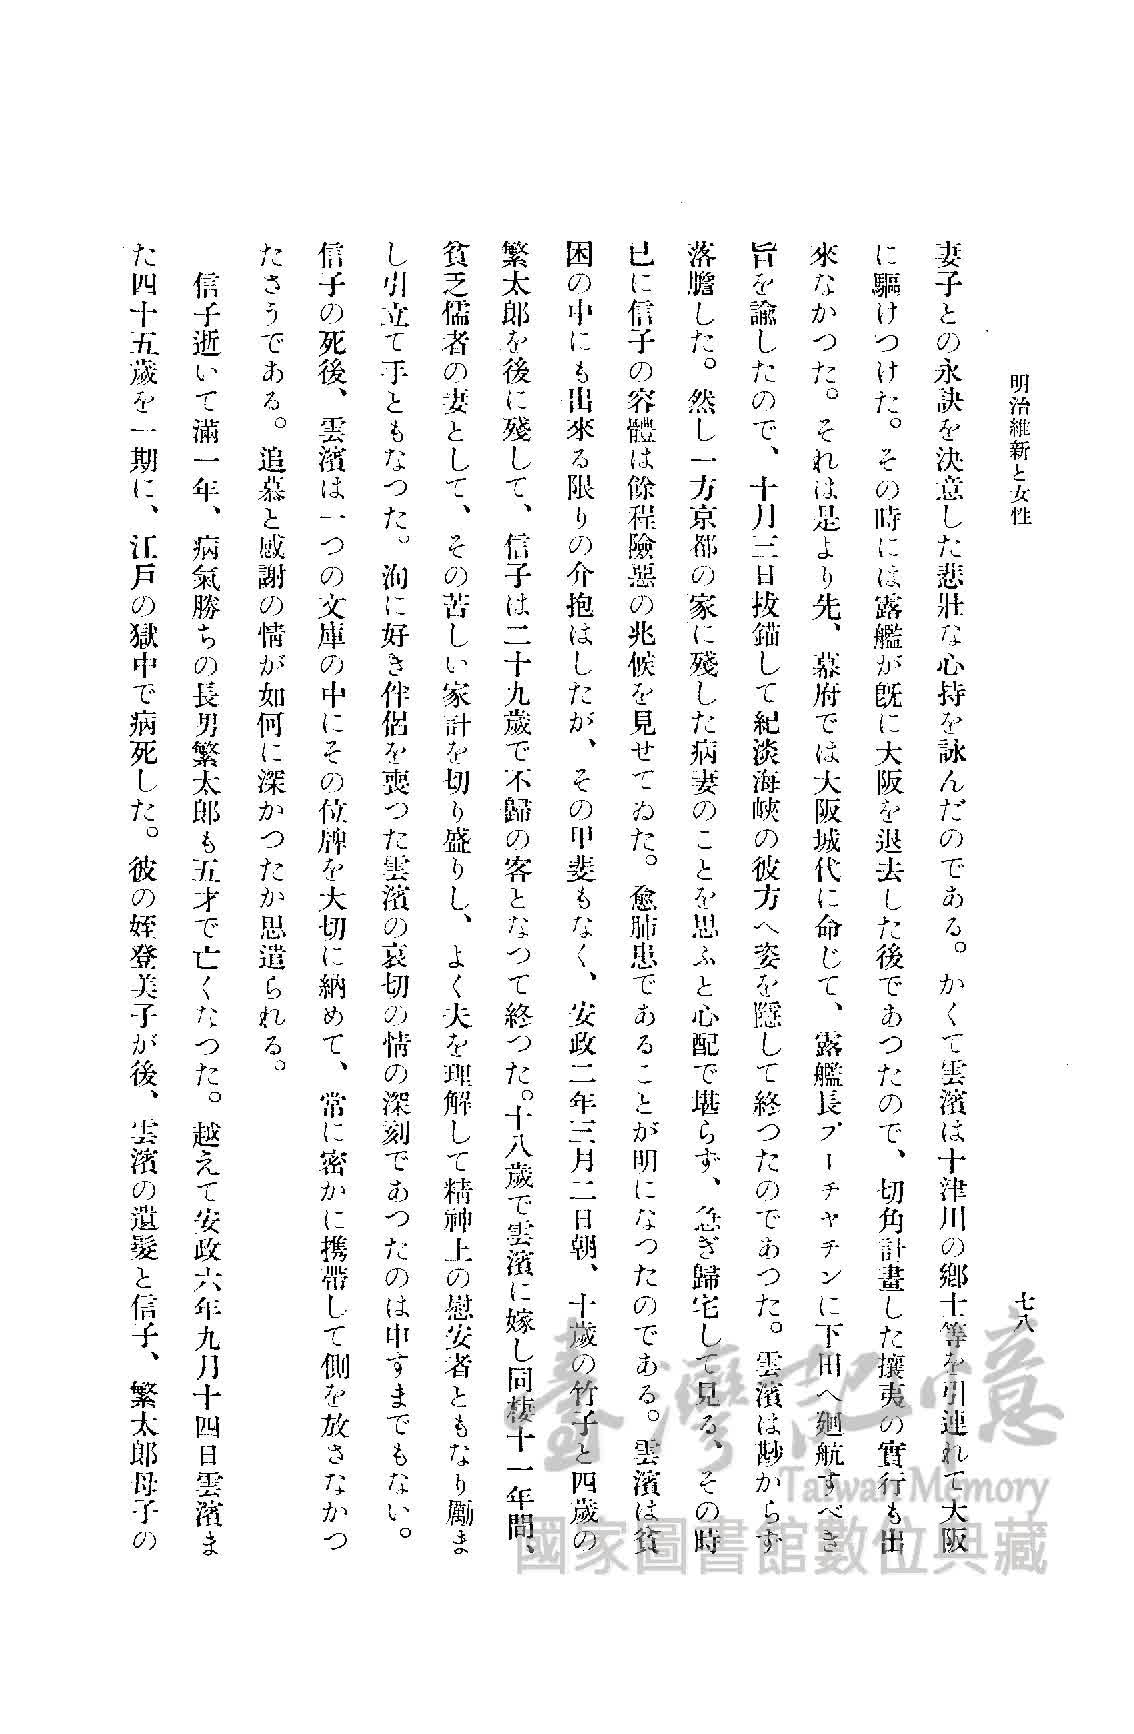 明治維新と女性
七八
妻子との永訣を決意した悲壯な心持を詠んだのである。かくて雲濱は十津川の鄕士等を引連れて大阪
に驅けつけた。その時には露艦が既に大阪を退去した後であつたので、切角計畫した攘夷の實行も出
來なかつた。それは是より先、幕府では大阪城代に命じて、露艦長プーチャチンに下田へ廻航すべき
旨を諭したので、十月三日拔錨して紀淡海峽の彼方へ姿を隱して終つたのであつた。雲濱は尠からず
落膽した。然し一方京都の家に殘した病妻のことを思ふと心配で堪らず、急ぎ歸宅して見る、その時
已に信子の容體は餘程險惡の兆候を見せてゐた。愈肺患であることが明になつたのである。雲濱は貧
困の中にも出來る限りの介抱はしたが、その甲斐もなく、安政二年三月二日朝、十歲の竹子と四歲の
繁太郎を後に殘して、信子は二十九歲で不歸の客となつて終つた。十八歲で雲濱に嫁し同棲十一年間、
貧乏儒者の妻として、その苦しい家計を切り盛りし、よく夫を理解して精神上の慰安者ともなり勵ま
し引立て手ともなつた。洵に好き伴侶を喪つた雲濱の哀切の情の深刻であつたのは申すまでもない。
信子の死後、雲濱は一つの文庫の中にその位牌を大切に納めて、常に密かに携帶して側を放さなかつ
たさうである。追慕と感謝の情が如何に深かつたか思遣られる。
信子逝いて滿一年、病氣勝ちの長男繁太郎も五才で亡くなつた。越えて安政六年九月十四日雲濱ま
た四十五歲を一期に、江戶の獄中で病死した。彼の姪登美子が後、雲濱の遺髮と信子、繁太郎母子の
臺灣記憶
Taiwan Memory
國家圖書館數位典藏